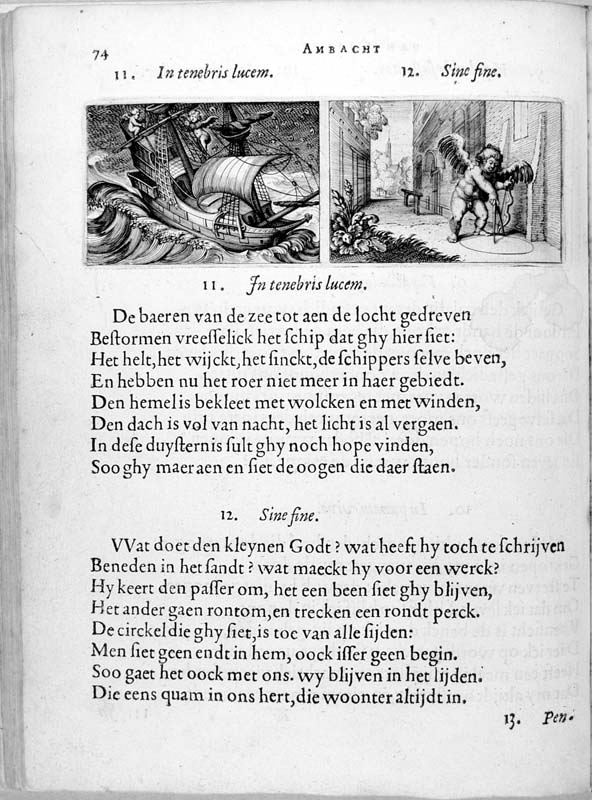 74 AMBACHT
11. In tenebris lucem. 12. Sine fine.
11. In tenebris lucem.
De baeren van de zee tot aen de locht gedreven
Beſtormen vreeſſelick het ſchip dat ghy hier ſiet:
Het helt, het wijckt, het ſinckt, de ſchippers ſelve beven,
En hebben nu het roer niet meer in haer gebiedt.
Den hemel is bekleet met wolcken en met winden,
Den dach is vol van nacht, het licht is al vergaen.
In deſe duyſternis ſult ghy noch hope vinden,
Soo ghy maer aen en ſiet de oogen die daer ſtaen.
12. Sine fine.
VVat doet den kleynen Godt? wat heeft hy toch te ſchrijven
Beneden in het ſandt? wat maeckt hy voor een werck?
Hy keert den paſſer om, het een been ſiet ghy blijven,
Het ander gaen rontom, en trecken een rondt perck.
De circkel die ghy ſiet, is toe van alle ſijden:
Men ſiet geen endt in hem, oock iſſer geen begin.
Soo gaet het oock met ons. wy blijven in het lijden.
Die eens quam in ons hert, die woonter altijdt in.
13. Pen-